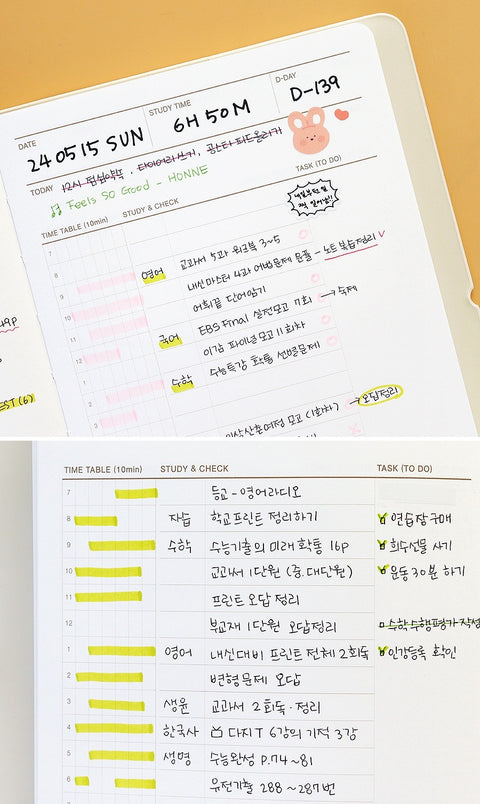 DATE STUDY TIME D-DAY
240515 SUN 6H 50M D-139
TODAY 12시 점심약속 · 다이어리쓰기, 공스타 피드올리기
Feels So Good - HONNE
TIME TABLE (10min) STUDY & CHECK TASK (TO DO)
7
영어 교과서 5과 워크북 3~5
8
내신마스터 4과 어법문제 문풀 - 노트 복습정리
9
어휘끝 단어암기
10
국어 EBS Final 실전모고 11회 → 숙제
11
이감 파이널 모고 11회차
12
수학 수능특강 확통 선별문제
1
2
3
(1회차) → 오답정리
49P
EST (6)
TIME TABLE (10min) STUDY & CHECK TASK (TO DO)
7 등교 - 영어라디오
8 자습 학교프린트 정리하기 연습장 구매
9 수학 수능기출의 미래 확통 16p 희수선물 사기
10 교과서 1단원 (중.대단원) 운동 30분 하기
11 프린트 오답 정리
12 부교재 1단원 오답정리 수학수행평가작성
1 영어 내신대비 프린트 전체 2회독 인강등록 확인
2 변형문제 오답
3 생윤 교과서 2회독·정리
4 한국사 다지T 6강의 기적 3강
5 생명 수능완성 P.74~81
6 유전기출 288~287번